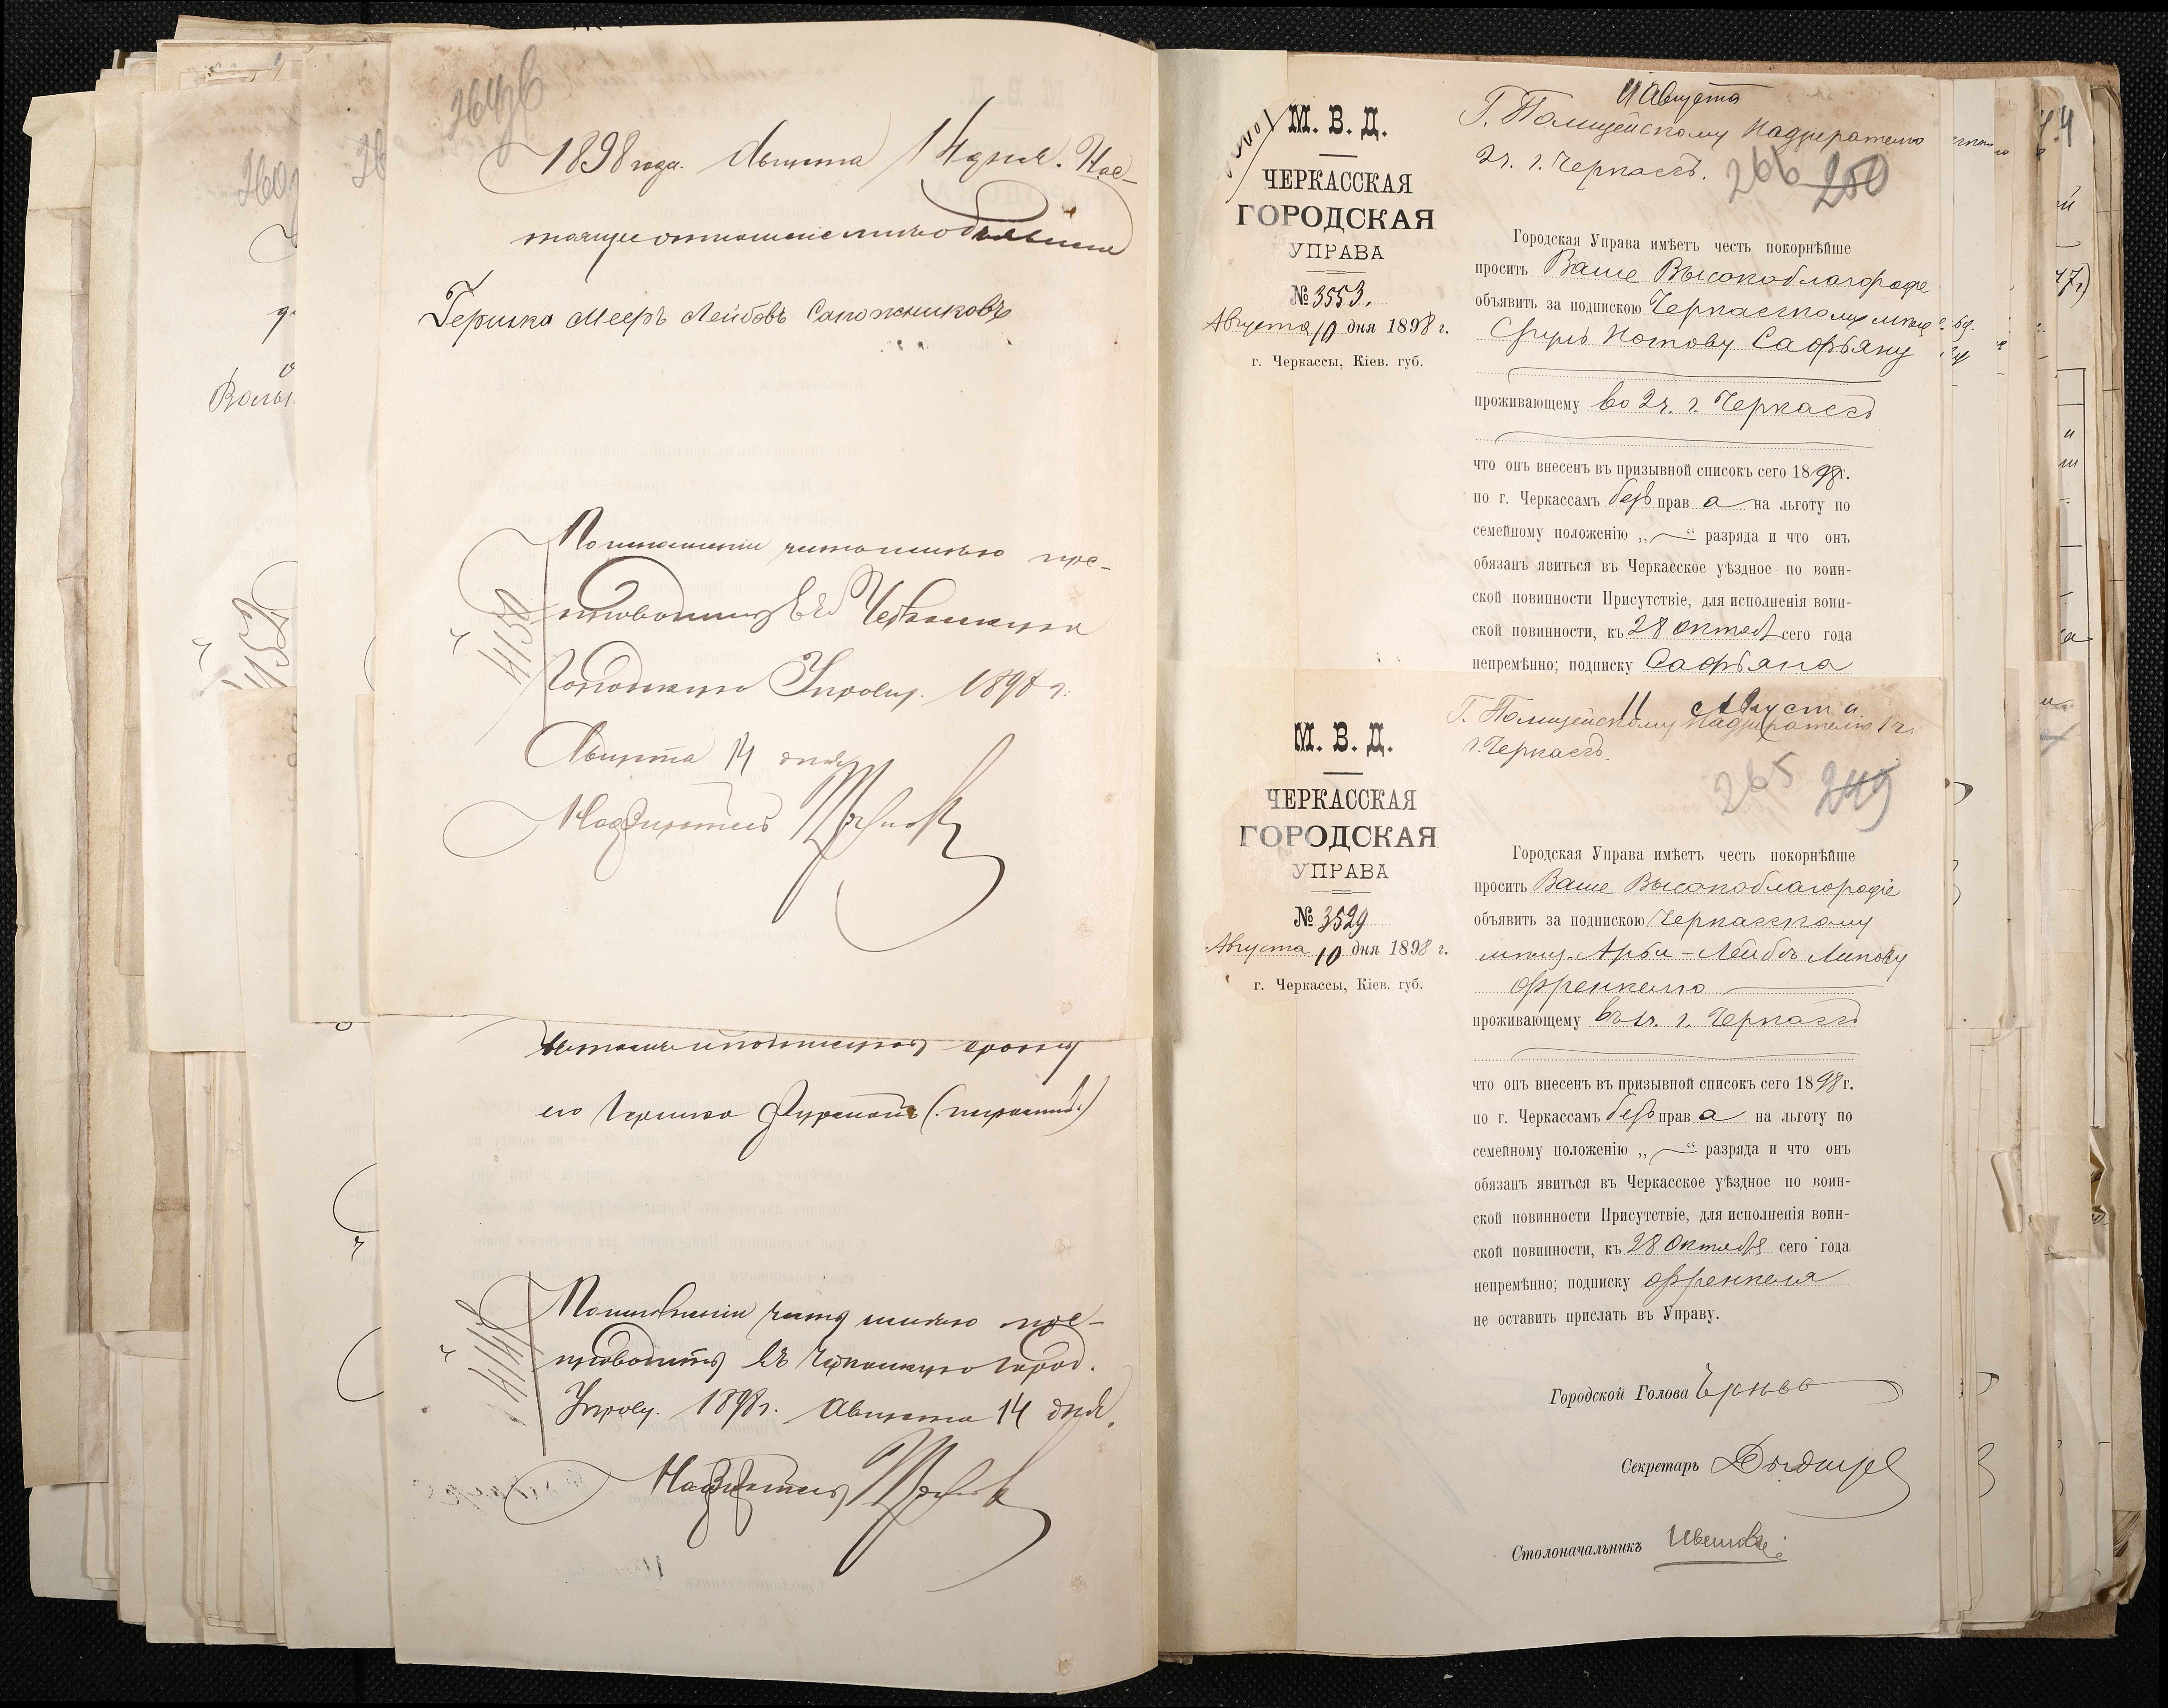 1898 года. Августа 14 дня. Нас-
тоящее отношение мне объявлено
Гершко Мееръ Лейбовъ Сапожниковъ
4150
По исполнении читанною пре-
проводить въ Черкасскую
Городскую Управу. 1898 г.
Августа 14 дня
Надзиратель
его Гершко Фурманъ
4148
По исполнении
препроводить въ Черкасскую город.
Управу. 1898 г. Августа 14 дня.
Надзиратель
11 Августа
М. В. Д.
ЧЕРКАССКАЯ
ГОРОДСКАЯ
УПРАВА
№ 3553.
Августа 10 дня 1898 г.
г. Черкассы, Кіев. губ.
Г. Полицейскому Надзирателю
2 ч. г. Черкассъ.
266 250
Городская Управа имѣетъ честь покорнѣйше
просить Ваше Высокоблагородіе
объявить за подпискою Черкасскому мѣщ.
Сруль Нотову Сафьяну
проживающему во 2 ч. г. Черкассъ
что онъ внесенъ въ призывной списокъ сего 1898 г.
по г. Черкассамъ безъ права на льготу по
семейному положенію „—“ разряда и что онъ
обязанъ явиться въ Черкасское уѣздное по воин-
ской повинности Присутствіе, для исполненія воин-
ской повинности, къ 28 Октяб сего года
непремѣнно; подписку Сафьяна
11 Августа
М. В. Д.
ЧЕРКАССКАЯ
ГОРОДСКАЯ
УПРАВА
№ 3529
Августа 10 дня 1898 г.
г. Черкассы, Кіев. губ.
Г. Полицейскому Надзирателю 1 ч.
г. Черкассъ.
265 249
Городская Управа имѣетъ честь покорнѣйше
просить Ваше Высокоблагородіе
объявить за подпискою Черкасскому
мѣщ. Арья-Лейбъ Липову
Френкелю
проживающему въ 1 ч. г. Черкассъ
что онъ внесенъ въ призывной списокъ сего 1898 г.
по г. Черкассамъ безъ права на льготу по
семейному положенію „—“ разряда и что онъ
обязанъ явиться въ Черкасское уѣздное по воин-
ской повинности Присутствіе, для исполненія воин-
ской повинности, къ 28 Октября сего года
непремѣнно; подписку Френкеля
не оставить прислать въ Управу.
Городской Голова
Секретарь
Столоначальникъ